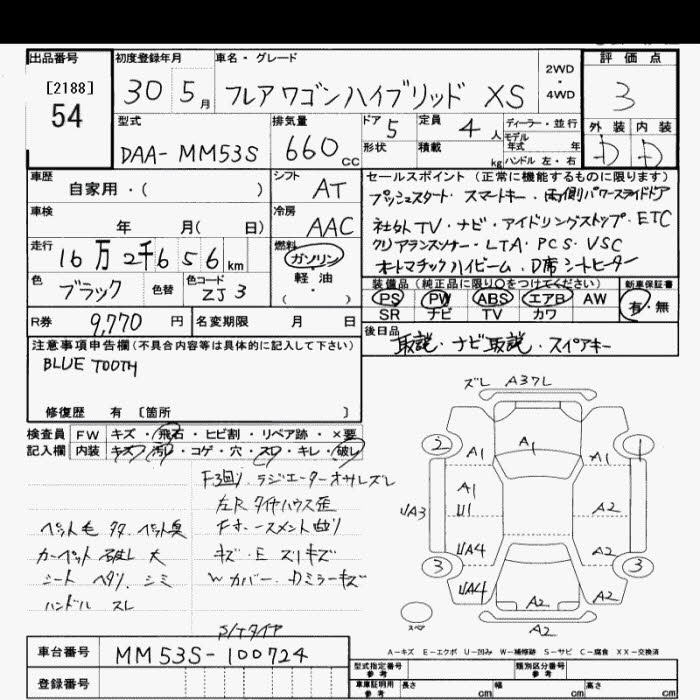 出品番号
[2188]
54
初度登録年月
30 5月
車名・グレード
フレアワゴンハイブリッド XS
2WD
・
4WD
評価点
3
型式
DAA-MM53S
排気量
660cc
ドア 5
形状
定員 4人
積載 kg
ディーラー・並行
モデル
年式 年
ハンドル 左・右
外装 内装
D D
車歴
自家用・( )
シフト
AT
車検
年 月( 日)
冷房
AAC
走行
16万2千656km
燃料
ガソリン
軽・油
・( )
色
ブラック
色替
色コード
ZJ3
R券 9,770円
名変期限 月 日
セールスポイント(正常に機能するものに限ります)
プッシュスタート・スマートキー・両側パワースライドドア
社外TV・ナビ・アイドリングストップ・ETC
クリアランスソナー・LTA・PCS・VSC
オートマチックハイビーム・D席シートヒーター
装備品(純正品に限り○をつけてください)
PS PW ABS エアB AW
SR ナビ TV カワ
新車保証書
有・無
後日品
取説・ナビ取説・スペアキー
注意事項申告欄(不具合内容等は具体的に記入して下さい)
BLUE TOOTH
修復歴 有〔箇所 〕
検査員
記入欄
FW キズ・飛石・ヒビ割・リペア跡・×要
内装 キズ・汚レ・コゲ・穴・スレ・キレ・破レ
F3回り・ラジエーターオサレズレ
左Rタイヤハウス歪
ペット毛 タタ ペット臭
カーペット 破レ 大
キズ・E ズリキズ
シート ヘタリ シミ
Wカバー・Dミラーキズ
ハンドル スレ
S/Tタイヤ
ズレ A37L
2 A1 A1 A1 1
A1
U1
UA3
A2
UA4
A2
3
3
UA4
A2
A2
スペア
A2
A-キズ E-エクボ U-凹み W-補修跡 S-サビ C-腐食 XX-交換済
車台番号
MM53S-100724
登録番号
型式指定番号
参考
類別区分番号
参考
車庫証明用
参考
長さ cm
幅 cm
高さ cm